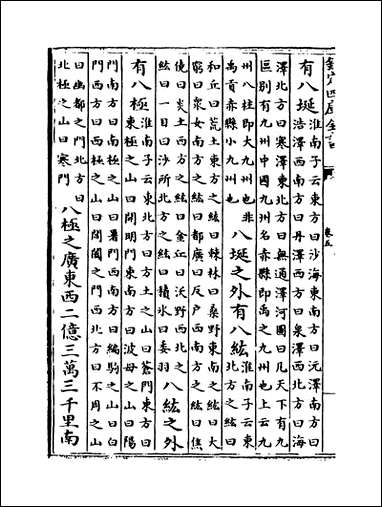 欽定四庫全書
卷五
有八埏淮南子云東方曰沙海東南方曰沅澤南方曰
浩澤西南方曰丹澤西方曰泉澤西北方曰海
澤北方曰寒澤東北方曰無通澤河圖曰凡天下有九
區別有九州中國九州名赤縣即禹之九州也上云九
州八柱即大九州也非
禹貢赤縣小九州也
八埏之外有八紘淮南子云東
北方之紘曰
和丘曰荒土東方之紘曰棘林曰桑野東南之紘曰大
窮曰衆女南方之紘曰都廣曰反戶西南方之紘曰焦
僥曰炎土西方之紘曰金丘曰沃野西北之
紘曰一目曰沙所北方之紘曰積氷曰委羽
八紘之外
有八極淮南子云東北方曰方土之山曰蒼門東方曰
東極之山曰開明門東南方曰波母之山曰陽
門南方曰南極之山曰暑門西南方曰編駒之山曰白
門西方曰西極之山曰閶闔之門西北方曰不周之山
曰幽都之門北方曰
北極之山曰寒門
八極之廣東西二億三萬三千里南